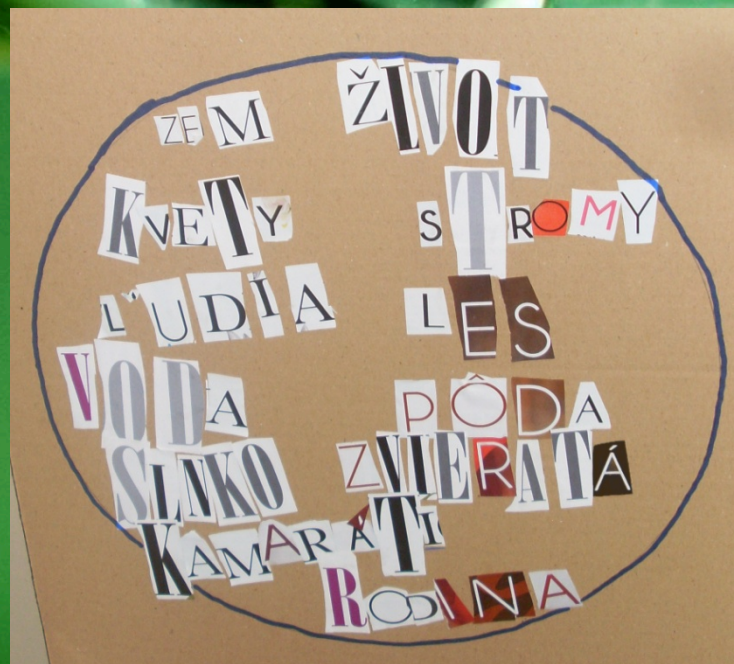 ZEM ŽIVOT
KVETY STROMY
ĽUDIA LES
VODA PÔDA
SLNKO ZVIERATÁ
KAMARÁTI
RODINA